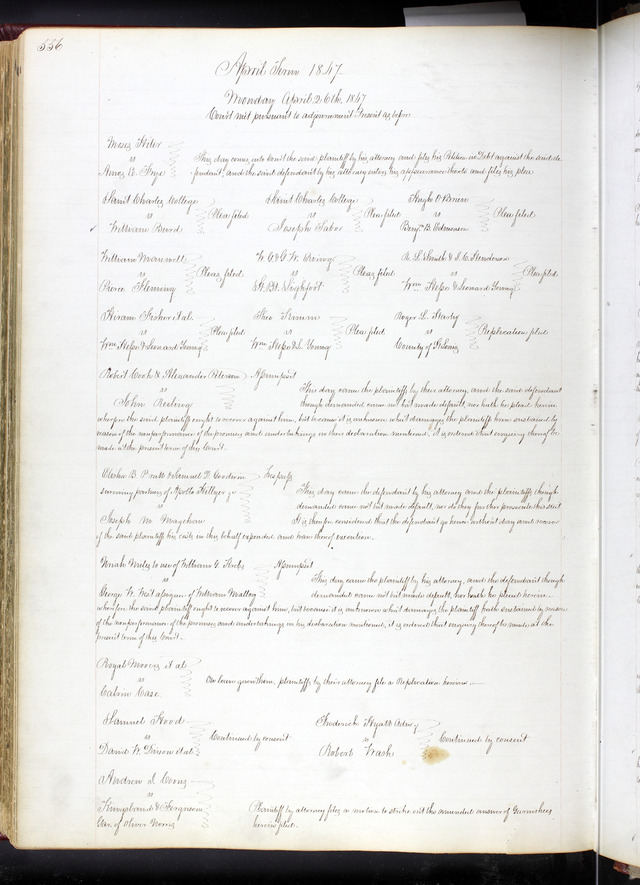 536
April Term 1847
Monday April 26th, 1847
Court met pursuant to adjournment Present as before
Moses
vs
Amos
This day comes into Court the said plaintiff by his attorney and files his Petition in Debt against the said de-
fendant, and the said defendant by his attorney enters his appearance thereto and files his plea
Saint Charles College
vs
William Burd
Plea filed
Saint Charles College
vs
Joseph Tabor
Plea filed
Hugh O'Brien
vs
Benjn. B. Edmonson
Plea filed
William Maxwell
vs
Pierce Fleming
Pleas filed
W. G. & G. W. Ewing
vs
Lightfoot
Pleas filed
R. L. Smith & J. C. Henderson
vs
Wm & Leonard Young
Plea filed
Hiram Fisher et al.
vs
Wm & Leonard Young
Plea filed
Theo
vs
Wm & L. Young
Plea filed
Roger L.
vs
County of St Louis
Replication filed
Robert Cook & Alexander Peterson
vs
John
Assumpsit
This day came the plaintiffs by their attorney, and the said defendant
though demanded came not but made default, nor hath he plead herein
whereupon the said plaintiffs ought to recover against him, but because it is unknown what damages the plaintiffs have sustained by
reason of the nonperformance of the promises and undertakings in their declaration mentioned, it is ordered that enquiry thereof be
made at the present term of this Court.
B. Pratt & Samuel T. Goodwin
surviving partners of Apollo
vs
Joseph M.
Trespass
This day came the defendant by his attorney and the plaintiffs though
demanded came not but made default, nor do they further prosecute this suit
It is therefore considered that the defendant go hence without day and recover
of the said plaintiffs his costs in this behalf expended and have thereof execution.
to use of William G.
vs
George W. West assignee of William
Assumpsit
This day came the plaintiff by his attorney, and the defendant though
demanded came not but made default, nor hath he plead herein
wherefore the said plaintiff ought to recover against him, but because it is unknown what damages the plaintiff hath sustained by reason
of the nonperformance of the promises and undertakings in his declaration mentioned, it is ordered that enquiry thereof be made at the
present term of this Court.
Royal et al.
vs
Calvin Case
On leave given them, plaintiffs by their attorney file a Replication herein
Samuel Hood
vs
David W. et al.
Continued by consent
Frederick Hyatt Admr
vs
Robert Wash
Continued by consent
Andrew
vs
& Ferguson
Gar. of Oliver
Plaintiff by attorney files a motion to strike out the amended answer of Garnishees
herein filed.